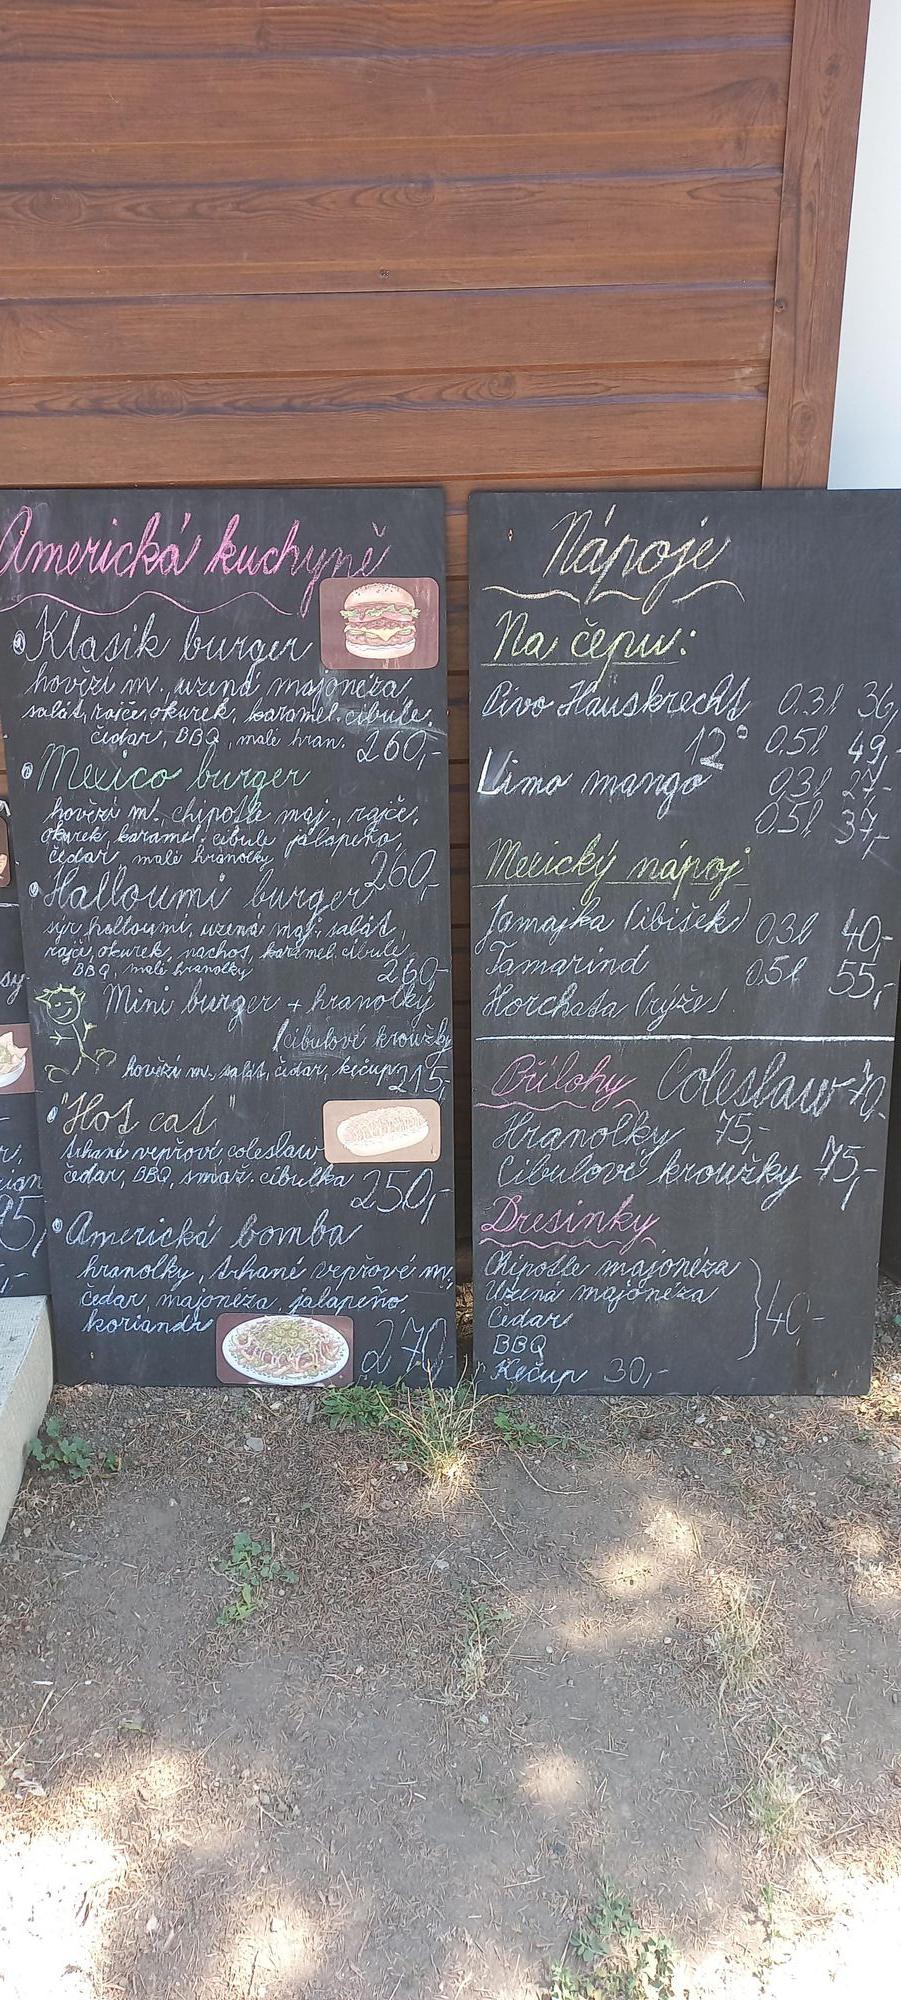 Americká kuchyně
Klasik burger
hovězí m., uzená majonéza,
salát, rajče, okurek, karamel. cibule,
čedar, BBQ, malé hran. 260,-
Mexico burger
hovězí m., chipotle maj., rajče,
okurek, karamel. cibule, jalapeño,
čedar, malé hranolky 260,-
Halloumi burger
sýr halloumi, uzená maj., salát,
rajče, okurek, nachos, karamel. cibule,
BBQ, malé hranolky 260,-
Mini burger + hranolky
/cibulové kroužky
hovězí m., salát, čedar, kečup 215,-
"Hot cat"
trhané vepřové, coleslaw
čedar, BBQ, smaž. cibulka 250,-
Americká bomba
hranolky, trhané vepřové m,
čedar, majonéza, jalapeño,
koriandr 270,-
Nápoje
Na čepu:
Pivo Hauskrecht 0.3l 36,
12° 0.5l 49,-
Limo mango 0,3l 27,-
0.5l 37,-
Mexický nápoj
Jamajka (ibišek) 0,3l 40,-
Tamarind 0,5l 55,-
Horchata (rýže)
Přílohy Coleslaw 70,-
Hranolky 75,-
Cibulové kroužky 75,-
Dresinky
Chipotle majonéza
Uzená majonéza
Čedar 40,-
BBQ
Kečup 30,-